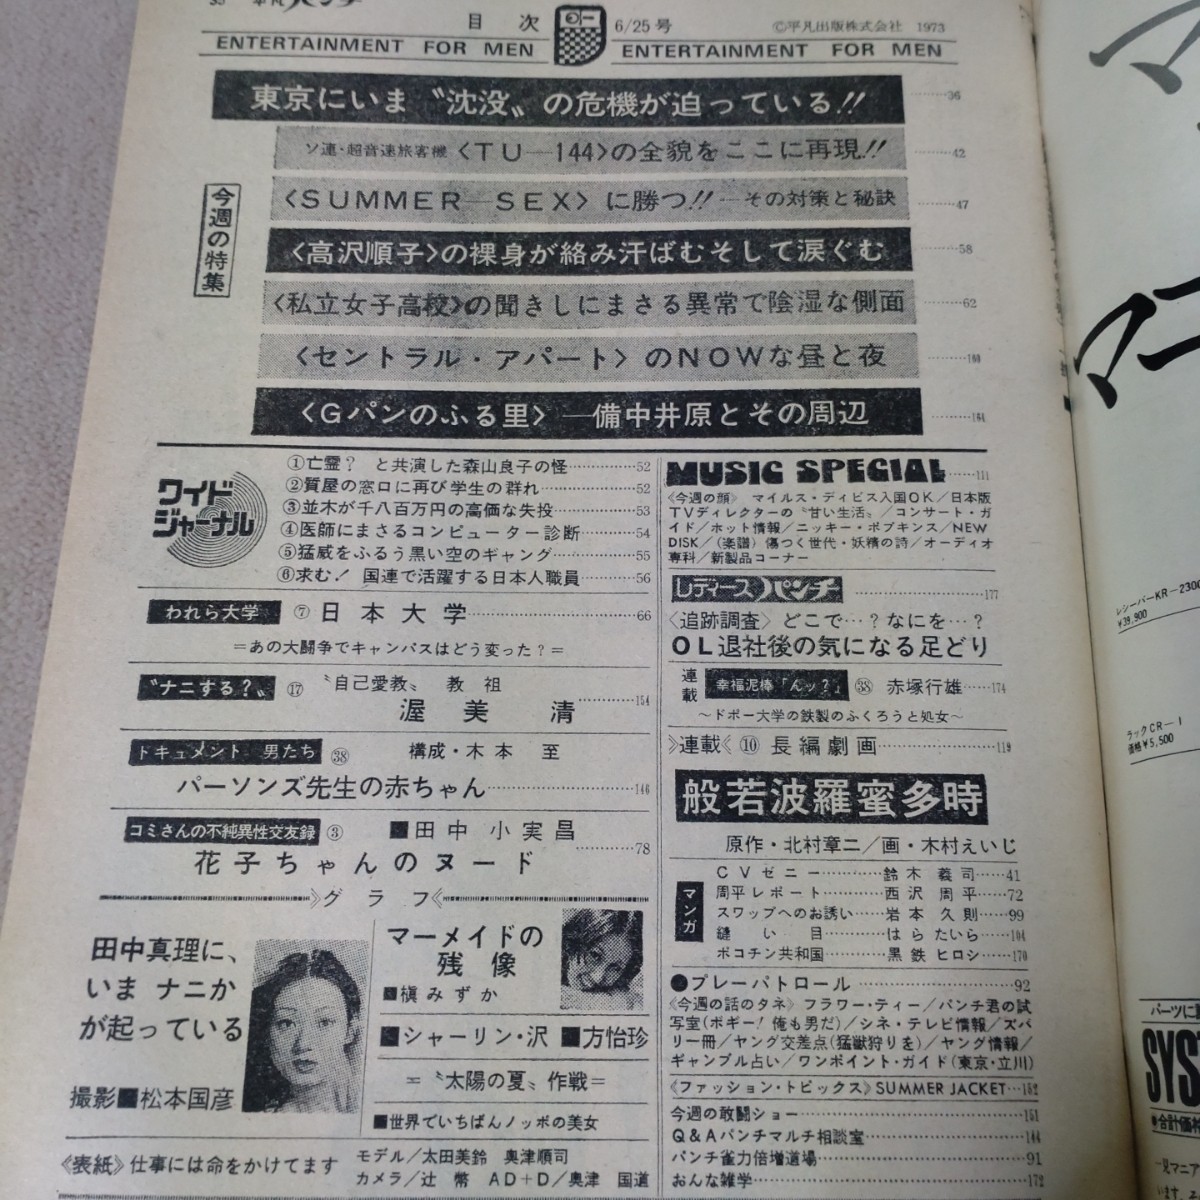 平凡パンチ
目次
6/25号
©平凡出版株式会社 1973
ENTERTAINMENT FOR MEN
ENTERTAINMENT FOR MEN
今週の特集
東京にいま〝沈没〟の危機が迫っている!!………36
ソ連・超音速旅客機〈TU—144〉の全貌をここに再現!!………42
〈SUMMER—SEX〉に勝つ!!—その対策と秘訣………47
〈高沢順子〉の裸身が絡み汗ばむそして涙ぐむ………58
〈私立女子高校〉の聞きしにまさる異常で陰湿な側面………62
〈セントラル・アパート〉のNOWな昼と夜………160
〈Gパンのふる里〉—備中井原とその周辺………164
ワイドジャーナル
①亡霊? と共演した森山良子の怪………52
②質屋の窓口に再び学生の群れ………52
③並木が千八百万円の高価な失投………53
④医師にまさるコンピューター診断………54
⑤猛威をふるう黒い空のギャング………55
⑥求む! 国連で活躍する日本人職員………56
われら大学 ⑦ 日本大学………66
=あの大闘争でキャンパスはどう変った?=
〝ナニする?〟 ⑰ 〝自己愛教〟 教祖
渥美 清………154
ドキュメント 男たち ㊳ 構成・木本 至
パーソンズ先生の赤ちゃん………146
コミさんの不純異性交友録 ③ ■田中 小実昌
花子ちゃんのヌード………78
》グラフ《
田中真理に、
いま ナニか
が起っている
撮影■松本国彦
マーメイドの
残像
■槇みずか
■シャーリン・沢 ■方怡珍
=〝太陽の夏〟作戦=
■世界でいちばんノッポの美女
《表紙》仕事には命をかけてます
モデル/太田美鈴 奥津順司
カメラ/辻 幣 AD+D/奥津 国道
MUSIC SPECIAL………111
《今週の顔》 マイルス・デイビス入国OK/日本版
TVディレクターの〝甘い生活〟/コンサート・ガ
イド/ホット情報/ニッキー・ホプキンス/NEW
DISK/(楽譜)傷つく世代・妖精の詩/オーディオ
専科/新製品コーナー
レディースパンチ………177
〈追跡調査〉どこで…?なにを…?
OL退社後の気になる足どり
連載 幸福泥棒「んッ?」 ㊳ 赤塚行雄………174
〜ドボー大学の鉄製のふくろうと処女〜
》連載《 ⑩ 長編劇画………119
般若波羅蜜多時
原作・北村章二/画・木村えいじ
マンガ
CVゼニー………鈴木 義司………41
周平レポート………西沢 周平………72
スワップへのお誘い………岩本 久則………99
縫い目………はらたいら………104
ポコチン共和国………黒鉄ヒロシ………170
●プレーパトロール………92
《今週の話のタネ》フラワー・ティー/パンチ君の試
写室(ボギー!俺も男だ)/シネ・テレビ情報/ズバ
リ一冊/ヤング交差点(猛獣狩りを)/ヤング情報/
ギャンブル占い/ワンポイント・ガイド(東京・立川)
《ファッション・トピックス》SUMMER JACKET…152
今週の敢闘ショー………151
Q&Aパンチマルチ相談室………144
パンチ雀力倍増道場………91
おんな雑学………172
レシーバーKR-2300
¥39,900
ラックCR-1
価格¥5,500
パーツに
SYST
■合計価格